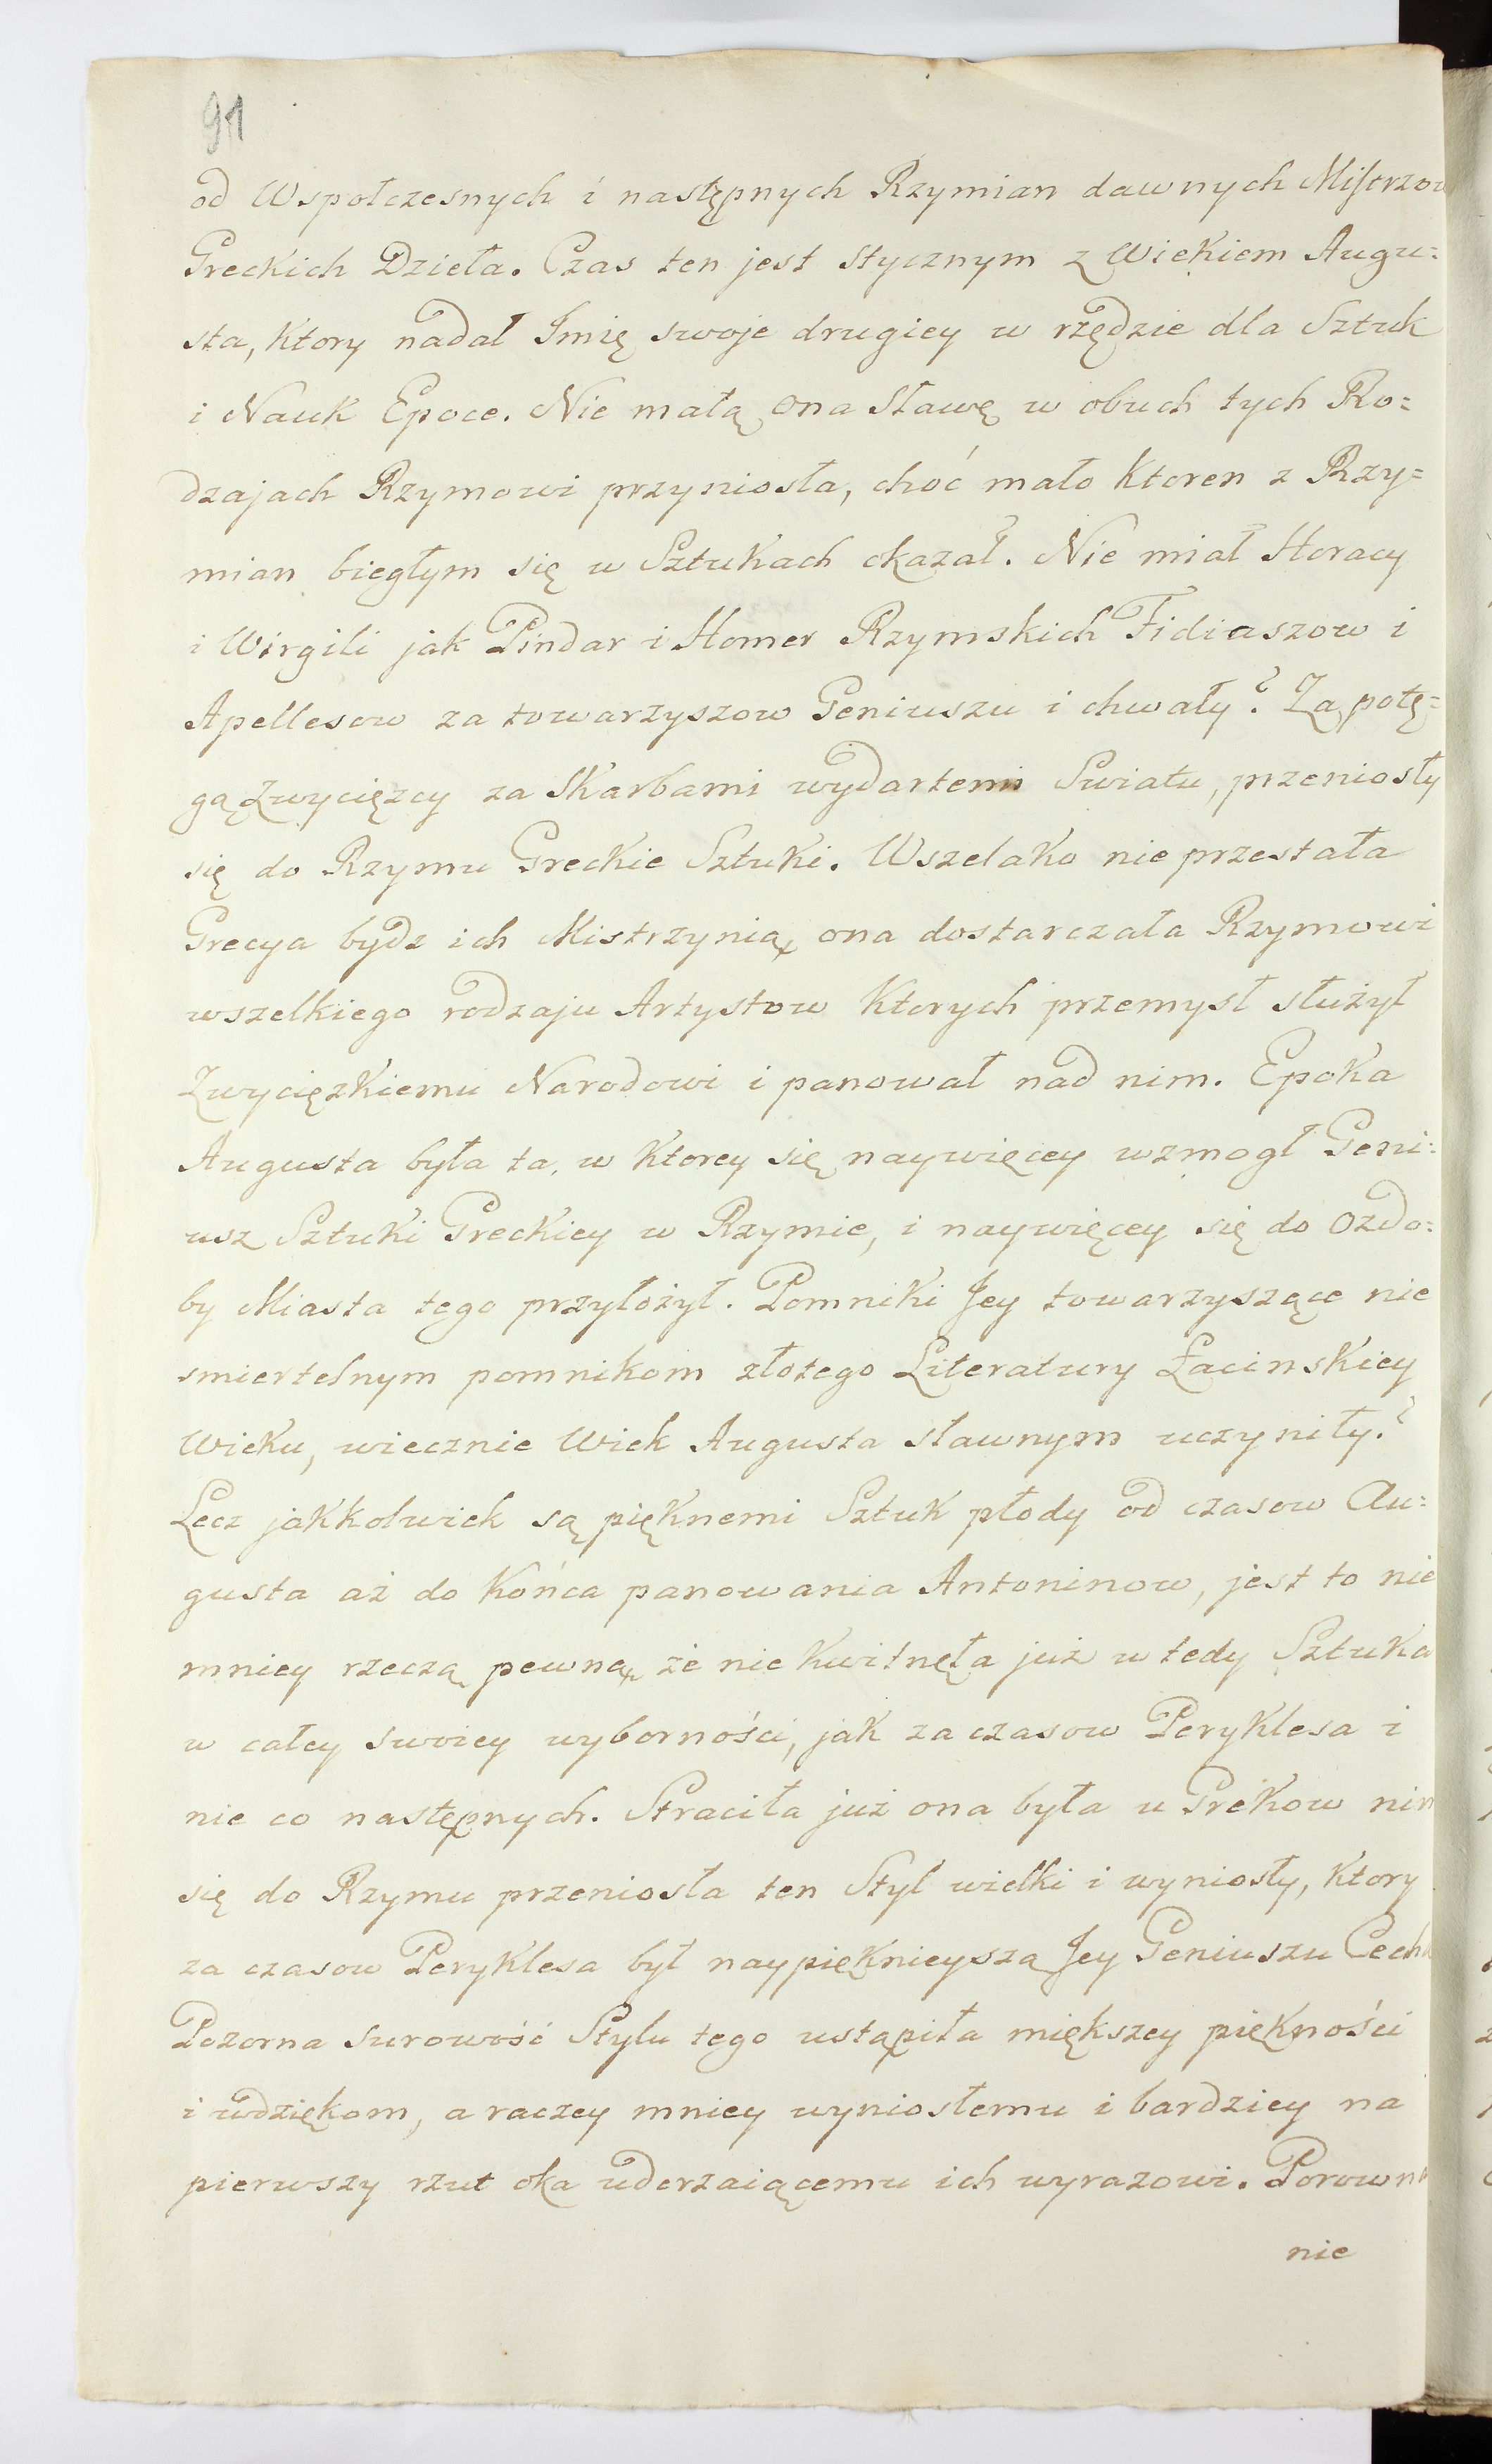 91
od Wspołczesnych i następnych Rzymian dawnych Mistrzow
Greckich Dzieła. Czas ten jest stycznym z Wiekiem Augu=
sta, ktory nadał Imię swoje drugiey w rzędzie dla Sztuk
i Nauk Epoce. Nie małą ona Sławę w obuch tych Ro=
dzajach Rzymowi przyniosła, choć mało ktoren z Rzy=
mian biegłym się w Sztukach okazał. Nie miał Horacy
i Wirgili jak Pindar i Homer Rzymskich Fidiaszow i
Apellesow za towarzyszow Geniuszu i chwały? Za potę=
gą Zwycięzcy za Skarbami wydartemi Swiatu, przeniosły
się do Rzymu Greckie Sztuki. Wszelako nie przestała
Grecya bydz ich Mistrzynią, ona dostarczała Rzymowi
wszelkiego rodzaju Artystow ktorych przemysł służył
Zwycięzkiemu Narodowi i panował nad nim. Epoka
Augusta była ta, w ktorey się naywięcey wzmogł Geni=
usz Sztuki Greckiey w Rzymie, i naywięcey się do Ozdo=
by Miasta tego przyłożył. Pomniki Jey towarzyszące nie
smiertelnym pomnikom złotego Literatury Łacinskiey
Wieku, wiecznie Wiek Augusta sławnym uczyniły?
Lecz jakkolwiek są pięknemi Sztuk płody od czasow Au=
gusta aż do końca panowania Antoninow, jest to nie
mniey rzeczą pewną, że nie kwitnęła już w tedy Sztuka
w całey swoiey wyborności, jak za czasow Peryklesa i
nie co następnych. Straciła już ona była u Grekow nim
się do Rzymu przeniosła ten Styl wielki i wyniosły, ktory
za czasow Peryklesa był naypięknieyszą Jey Geniuszu Cechą
Pozorna surowość Stylu tego ustąpiła miększey piękności
i wdziękom, a raczey mniey wyniosłemu i bardziey na
pierwszy rzut oka uderzaiącemu ich wyrazowi. Porowna
nie